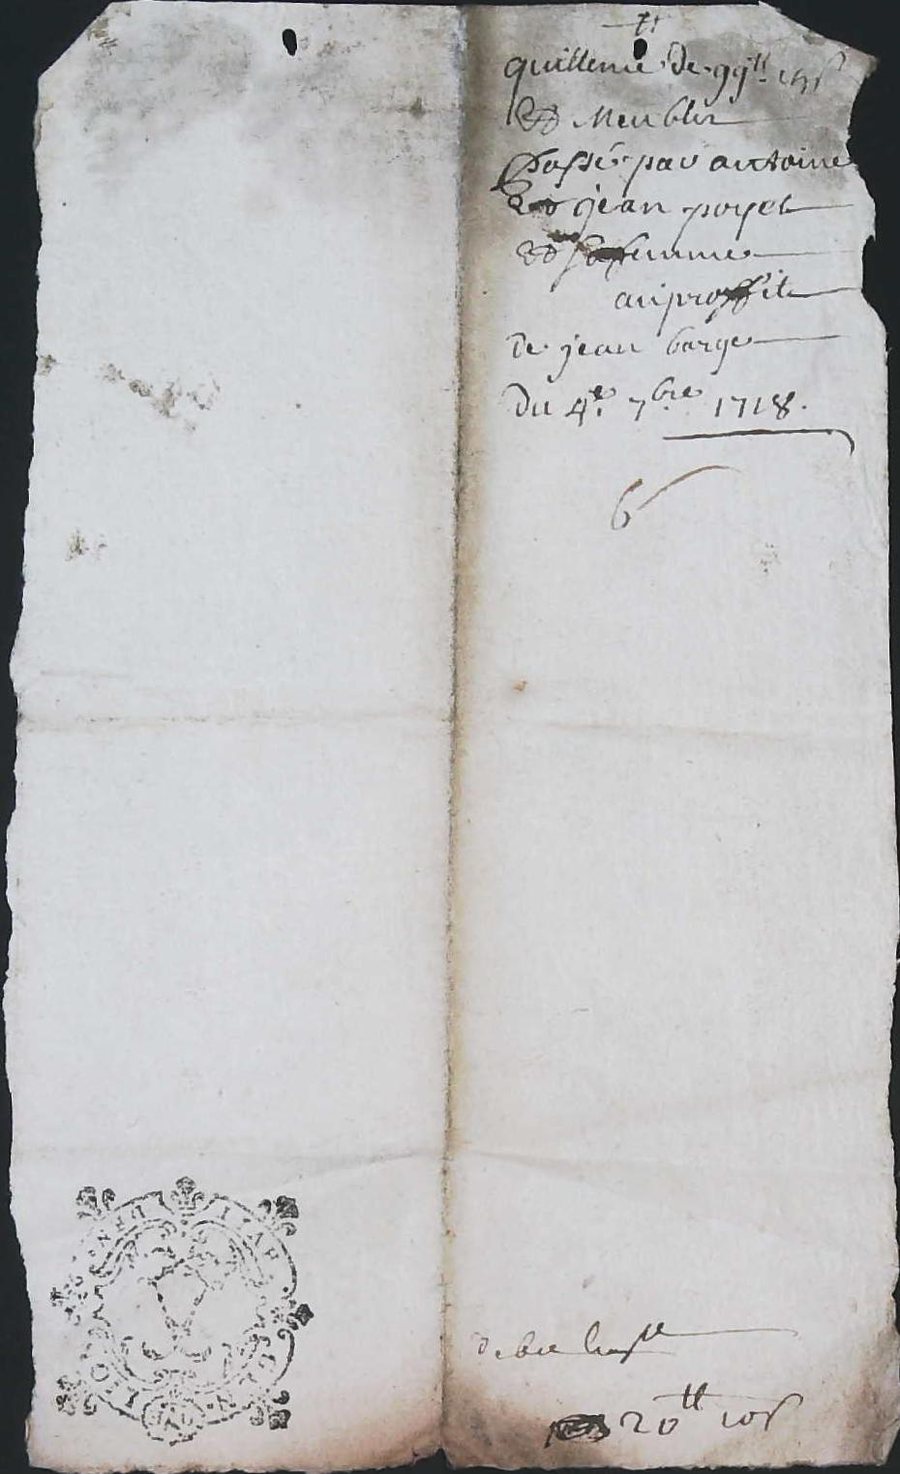 quittence de 99tt 15s
et Meubles
Passé par antoine
et jean poyet
et sa femme
au proffit
de jean barge
du 4e. 7bre 1718.
6
20tt 10s